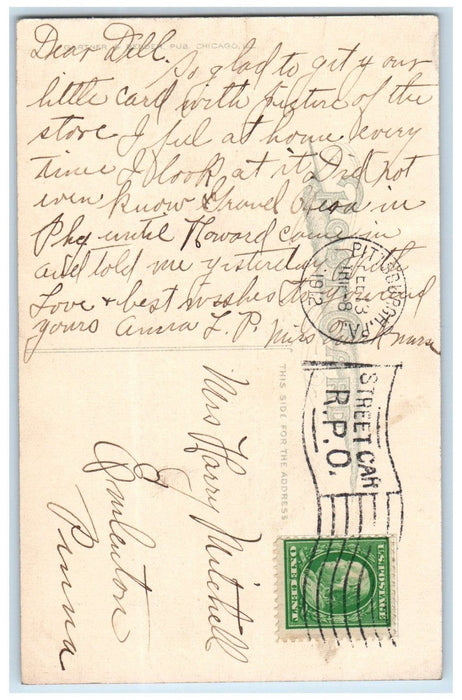 GARTNER & BENDER, PUB. CHICAGO, ILL.
Dear Dell.
So glad to get your
little card with picture of the
store I feel at home every
time I look at it Did not
even know Grand was in
Pbg until Howard came in
and told me yisterday with
Love & best wishes to you and
yours Anna L. P. Mrs
PITTSBURGH, PA.
FEB 3
TRIP 8
1912
STREET CAR
R.P.O.
POST CARD
THIS SIDE FOR THE ADDRESS
Mrs Harry Mitchell
Emlenton
Penna
U.S. POSTAGE
ONE CENT